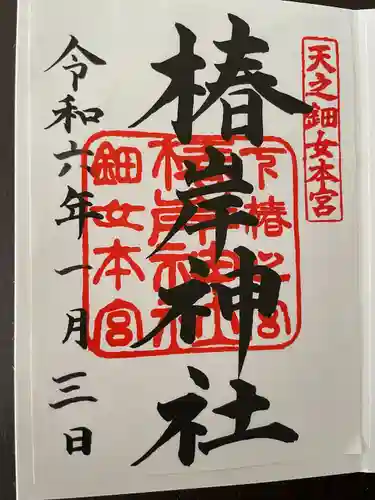 天之鈿女本宮
椿岸神社
下椿宮
椿岸神社
鈿女本宮
令和六年一月三日